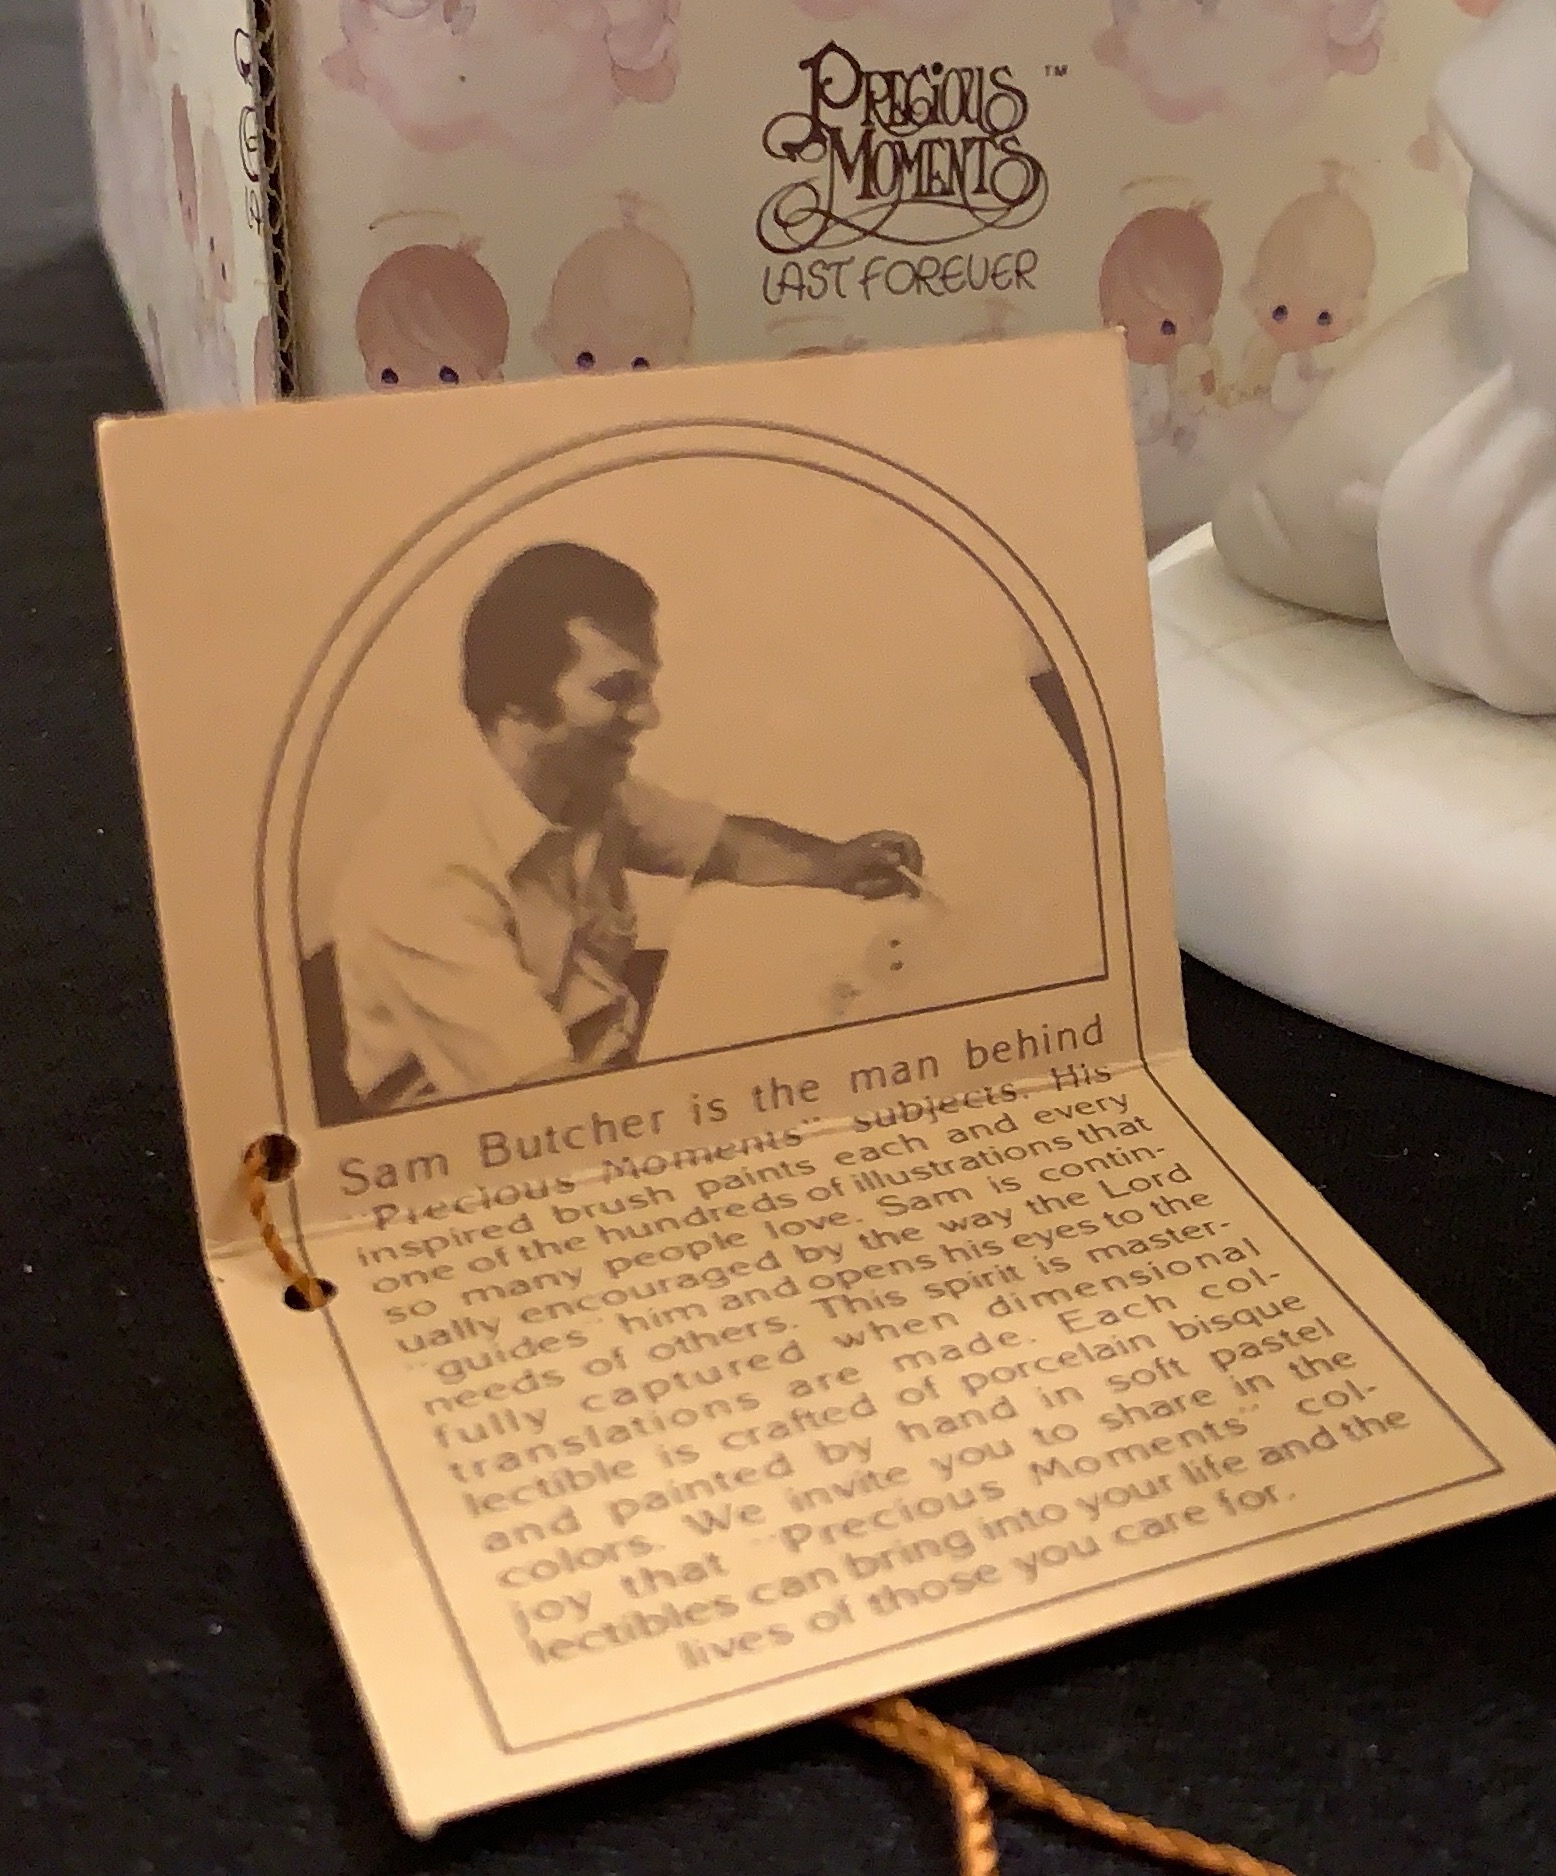 PRECIOUS ™
MOMENTS
LAST FOREVER
Sam Butcher is the man behind
"Precious Moments" subjects. His
inspired brush paints each and every
one of the hundreds of illustrations that
so many people love. Sam is contin-
ually encouraged by the way the Lord
"guides" him and opens his eyes to the
needs of others. This spirit is master-
fully captured when dimensional
translations are made. Each col-
lectible is crafted of porcelain bisque
and painted by hand in soft pastel
colors. We invite you to share in the
joy that "Precious Moments" col-
lectibles can bring into your life and the
lives of those you care for.